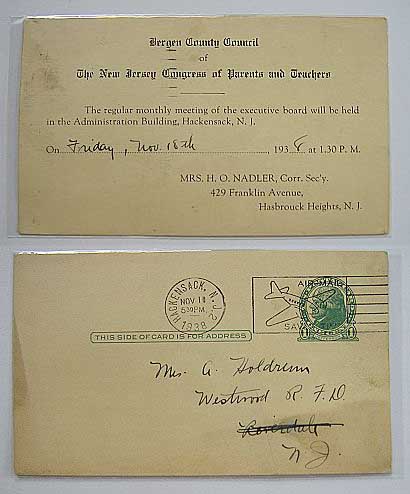 Bergen County Council
of
The New Jersey Congress of Parents and Teachers
The regular monthly meeting of the executive board will be held
in the Administration Building, Hackensack, N. J.
On Friday, Nov. 18th 1938 at 1.30 P. M.
MRS. H. O. NADLER, Corr. Sec'y.
429 Franklin Avenue,
Hasbrouck Heights, N. J.
HACKENSACK, N. J. 2
NOV 11
5 PM
1938
AIR MAIL
SAVES TIME
THIS SIDE OF CARD IS FOR ADDRESS
Mrs. A. Holdrum
Westwood R. F. D.
Riverdale
N. J.